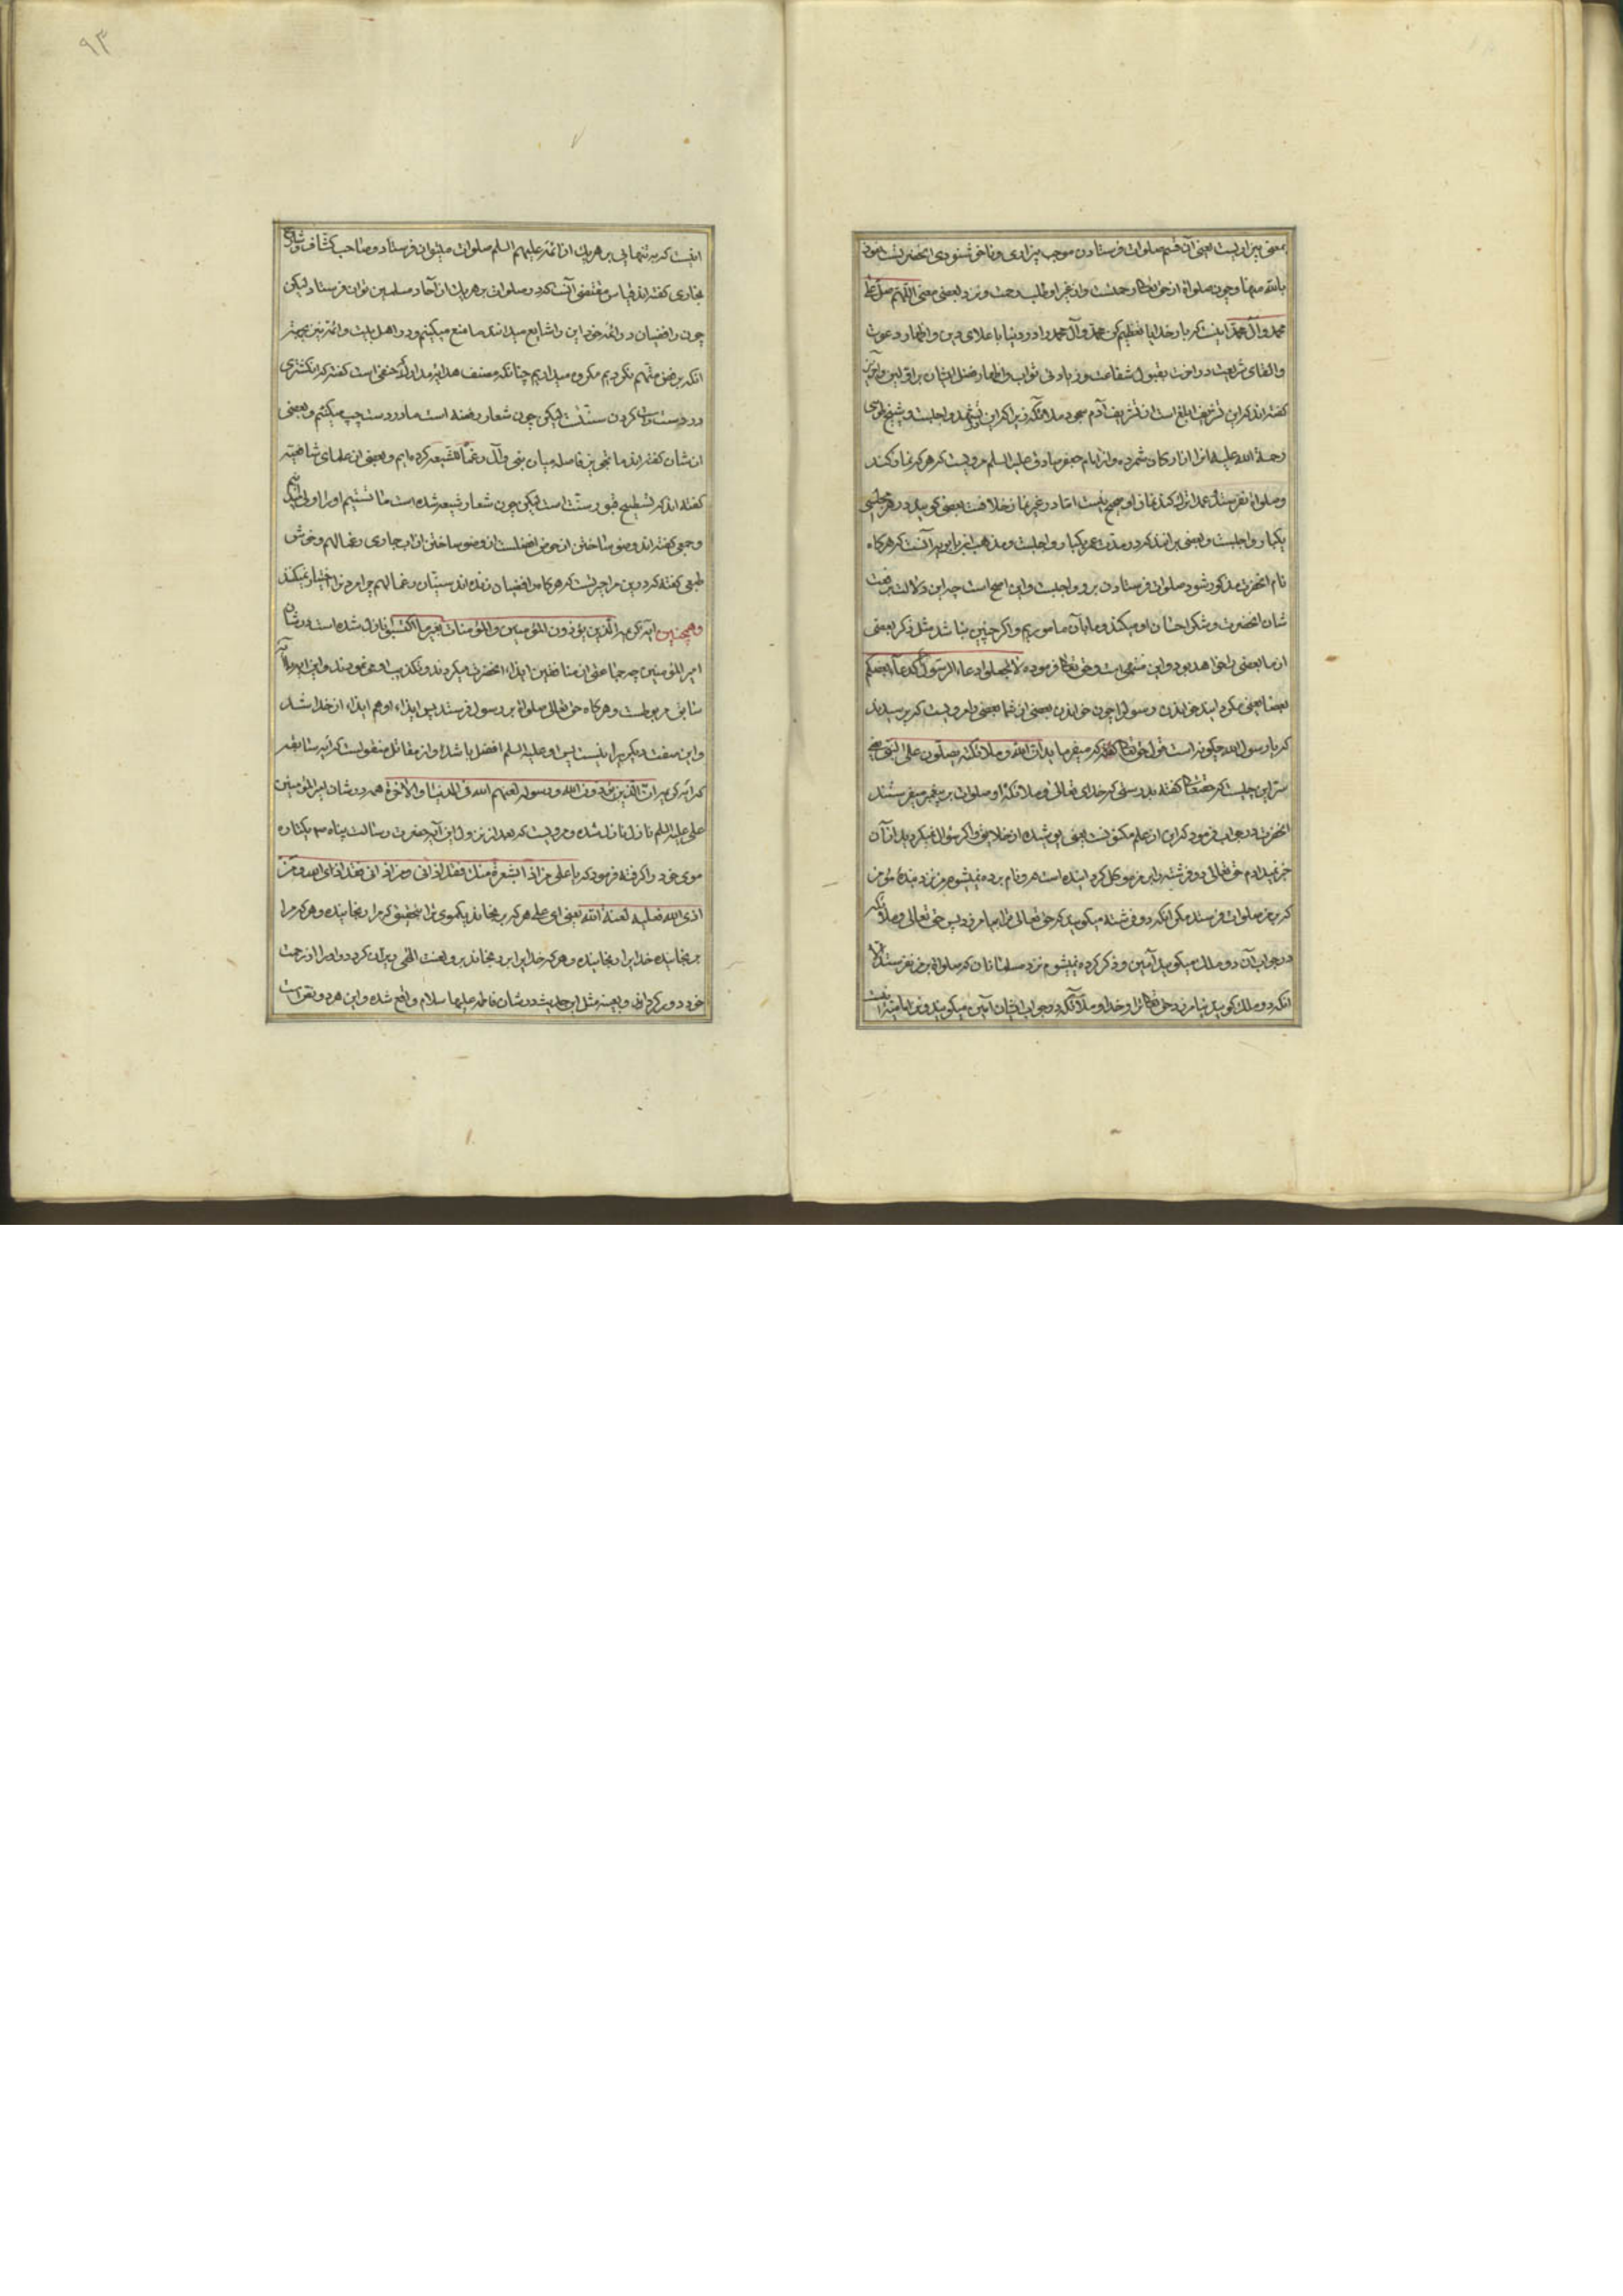 بمعنی بیزاریست یعنی آن قسم صلوات فرستادن موجب بیزاری و ناخوشنودی انحضرتست نعوذ
بالله منها و چون صلوة از حق تعالی رحمتست و از غیر او طلب رحمت و نزد بعضی معنی اللهم صل علی
محمد و آل محمد اینست که بار خدایا تعظیم کن محمد و آل محمد را در دنیا باعلای دین و اظهار دعوت
و القای شریعت و در اخرت بقبول شفاعت و زیادتی ثواب و اظهار فضل ایشان بر اولین و آخرین
کفته اند که این تشریف ابلغ است از تشریف آدم بسجود ملائکه زیرا که این واجبست و شیخ طوسی
رحمة الله علیه انرا از ارکان شمرده و از امام جعفر صادق علیه السلم مرویست که هر که نماز کند
و صلوة نفرستد و عمدا ترک کند نماز او صحیح نیست اما در غیر نماز خلافست بعضی کویند در هر مجلسی
یکبار واجبست و بعضی برانند که در مدت عمر یکبار واجبست و مذهب ابن بابویه آنست که هر کاه
نام انحضرت مذکور شود صلوات فرستادن برو واجبست و این اصح است چه این دلالت بر رفعت
شان انحضرت و شکر احسان او میکند و ما بآن ماموریم و اکر چنین نباشد مثل ذکر بعضی
از ما بعضی را خواهد بود و این منهی است و حق تعالی فرموده لا تجعلوا دعاء الرسول کدعاء بعضکم
بعضا یعنی مکردانید خواندن رسول را چون خواندن بعضی از شما بعضی را مرویست که پرسیدند
که یا رسول الله چکونه است قول حق تعالی که میفرماید ان الله و ملائکته یصلون علی النبی یعنی
سر این چیست که حقتعالی کفته بدرستی که خدای تعالی و ملائکهٔ او صلوات بر پیغمبر میفرستند
انحضرت در جواب فرمود که این از علم مکنونست یعنی پوشیده از خلایق و اکر سؤال نمیکردید از آن
خبر نمیدادم حق تعالی دو فرشته را بر من موکل کردانیده است هر و نام برده نمیشوم نزد بندهٔ مؤمن
که بر من صلوات فرستد مکر انکه دو فرشته میکویند که حق تعالی ترا بیامرزد پس حق تعالی و ملائکه
در جواب آن دو ملک میکویند آمین و ذکر کرده نمیشوم نزد مسلمانان که صلوة بر من نفرستد الا
انکه دو ملک کویند نیامرزد حق تعالی ترا و خدا و ملائکه در جواب ایشان آمین میکویند و نزد امامیه
اینست که به تنهایی بر هر یک از ائمه علیهم السلم صلوات میتوان فرستاد و صاحب کشاف و شارح
بخاری کفته اند قیاس مقتضی آنست که در صلوات بر هر یک از آحاد مسلمین توان فرستاد لیکن
چون رافضیان در ائمه خود این را شایع میدانند ما منع میکنیم و در اهل بیت و ائمه نیز بجهة
انکه برفض متهم نکردیم مکروه میداریم چنانکه مصنف هدایه حنفی است کفته که انکشتری
در دست راست کردن سنتست لیکن چون شعار رفضه است ما در دست چپ میکنیم و بعضی
از شان کفته اند ما نیز فاصله میان نبی و آل رغما للشیعه کرده ایم و بعضی از علمای شافعیه
کفته اند که تسطیح قبور سنت است لیکن چون شعار شیعه شده است ما تسنیم او را اولی
و جمعی کفته اند وضو ساختن از حوض افضلست از وضو ساختن از اب جاری رغما لهم و خوش
طبعی کفته که درین ماجرا نیست که هر کاه رافضیان زنده اند سنیان رغما لهم چرا مردن اختیار نمیکند
و همچنین ایه کریمه الذین یؤذون المؤمنین و المؤمنات بغیر ما اکتسبوا نازل شده است در شان
امیر المؤمنین چه جماعتی از منافقین ایذاء انحضرت میکردند و تکذیب او می نمودند و این ایه
سابق مربوطست و هر کاه حق تعالی صلوة بر رسول فرستد پس ایذاء او هم ایذاء از خدا شد
و این صفت دیکریرا نیست پس او علیه السلم افضل باشد و از مقاتل منقولست که ایه سابقه
که ایه کریمه ان الذین یؤذون الله و رسوله لعنهم الله فی الدنیا و الاخرة همه در شان امیر المؤمنین
علی علیه السلم نازل شده و مرویست که بعد از نزول این آیه حضرت رسالت پناه ص یکتاره
موی خود را کرفته فرمود که یا علی من اذی شعرة منک فقد اذانی و من اذانی فقد اذی الله و من
اذی الله فعلیه لعنة الله یعنی ای علی هر که برنجاند یکموی ترا بتحقیق که مرا رنجانیده و هر که مرا
برنجانیده خدایرا رنجانیده و هر که خدایرا برنجاند برو لعنت الهی و او را از رحمت
خود دور کرداند و بعینه مثل این حدیث در شان فاطمه علیها سلام واقع شده و این هر دو
۹۳